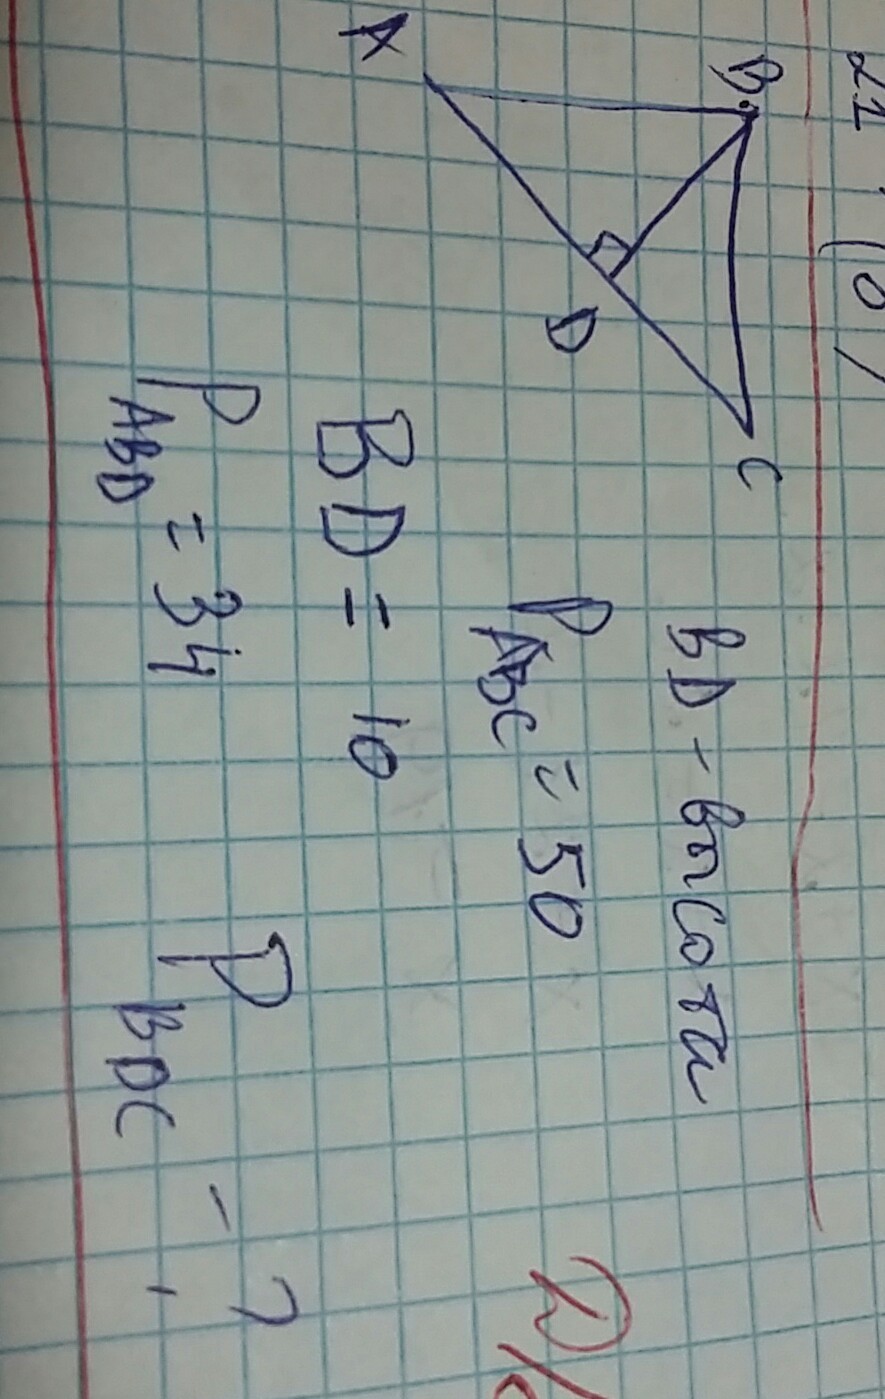 21. (
B
A
C
D
BD - высота
P ABC = 50
BD = 10
P ABD = 34
P BDC - ?